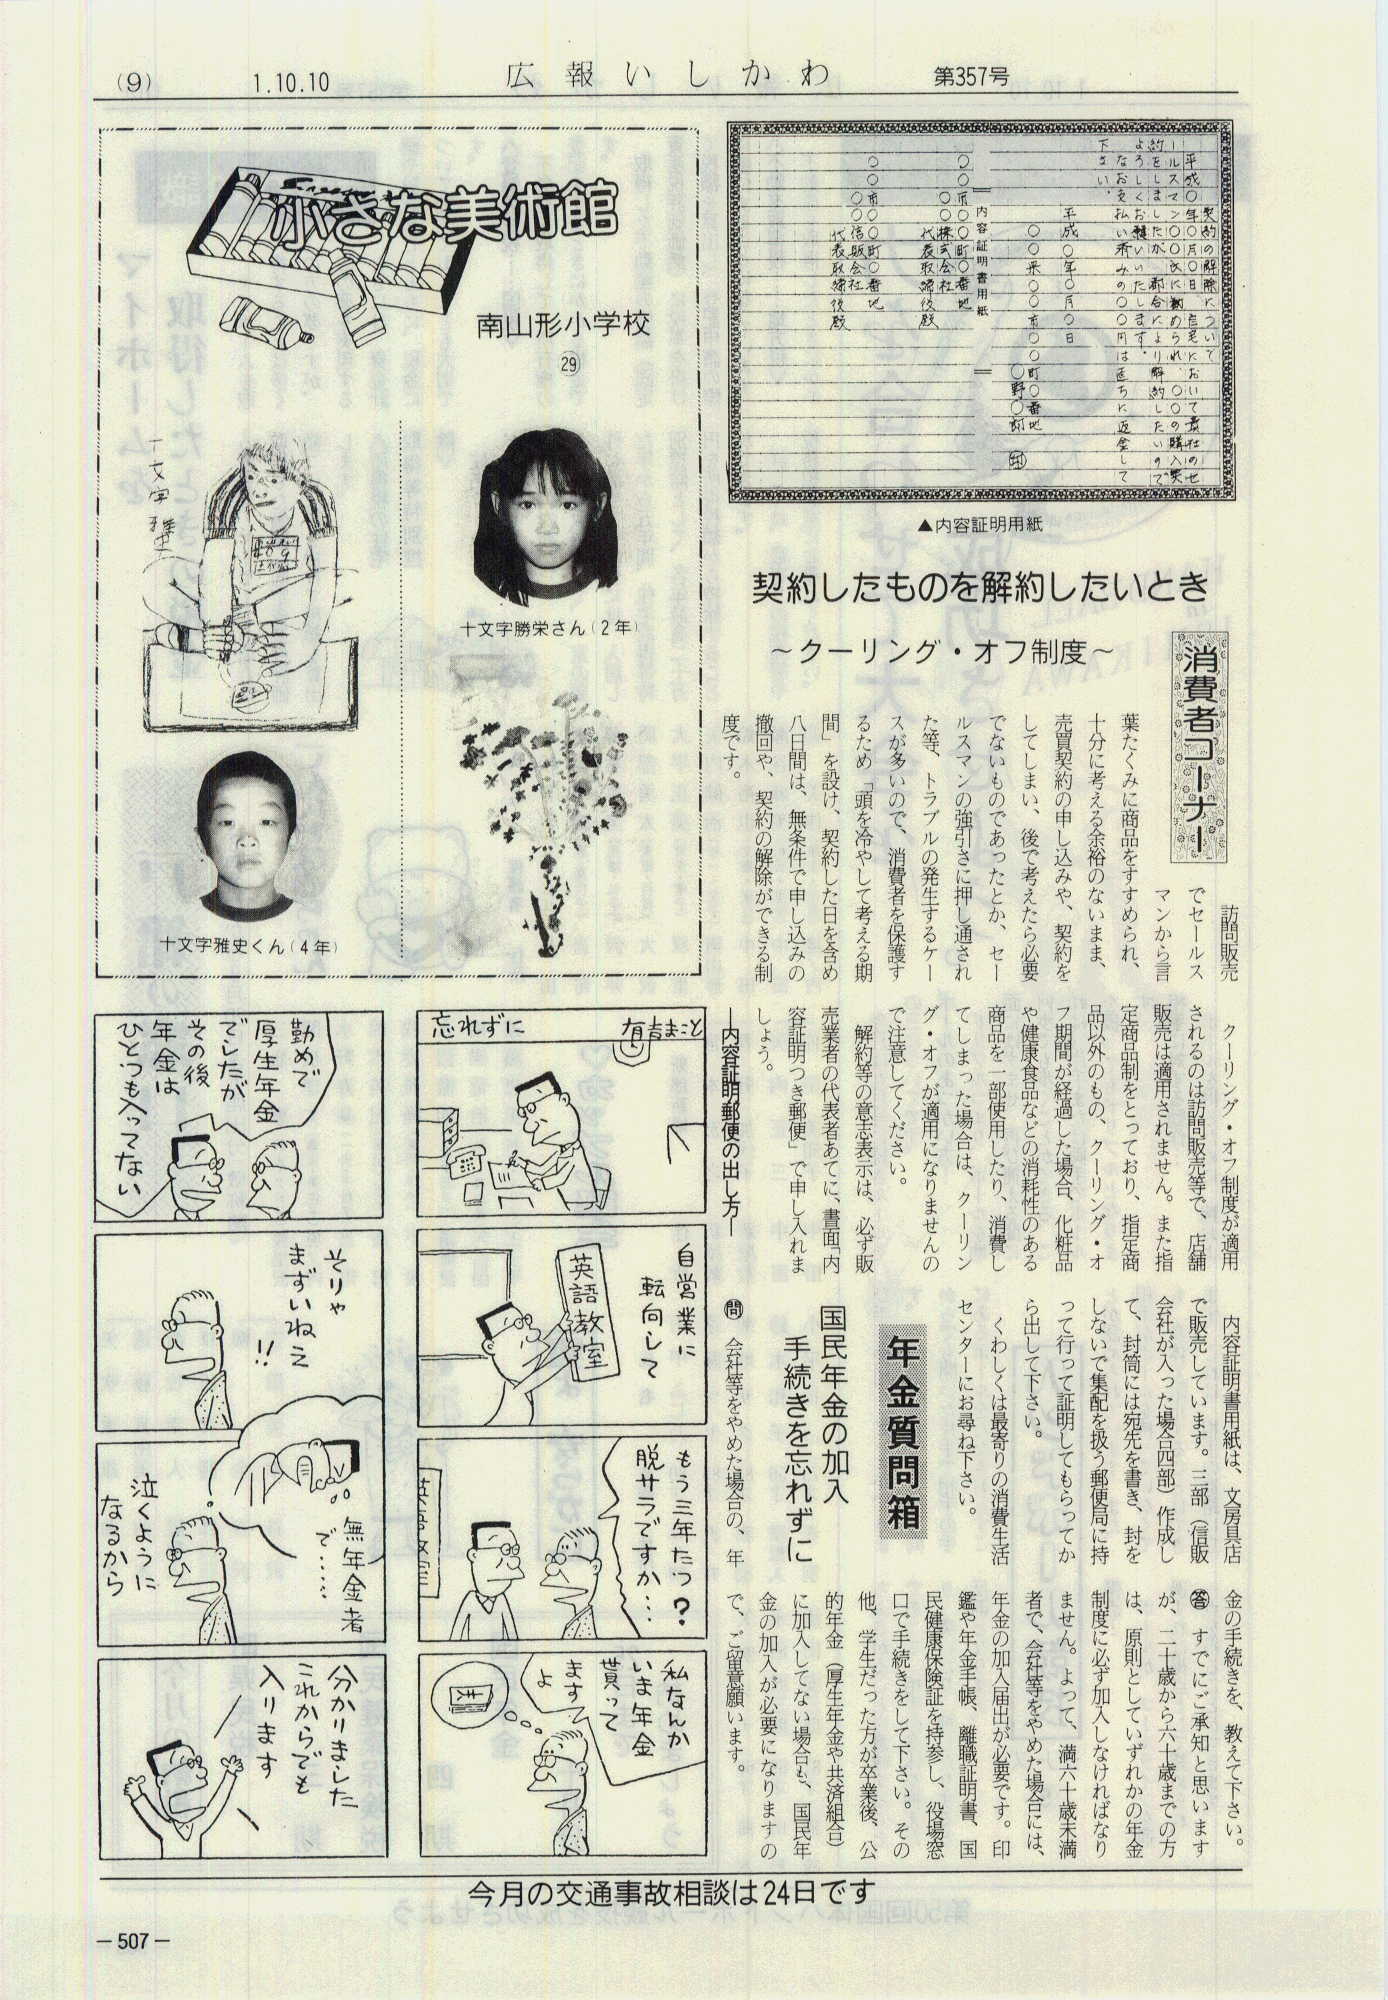 (9)
1.10.10
広報いしかわ
第357号
契約の解除について
平成○年○月○日、自宅において貴社のセ
ールスマン○○氏に勧められ、○○の購入契
約をしましたが、都合により解約したいので
よろしくお願いいたします。
なお、支払い済みの○○円は直ちに返金して
下さい。
平成○年○月○日
○○県○○市○○町○番地
○野○郎 ㊞
内容証明書用紙
○○市○○町○番地
○○株式会社
代表取締役殿
○○市○○町○番地
○○信販会社
代表取締役殿
▲内容証明用紙
消費者コーナー
契約したものを解約したいとき
～クーリング・オフ制度～
訪問販売
でセールス
マンから言
葉たくみに商品をすすめられ、
十分に考える余裕のないまま、
売買契約の申し込みや、契約を
してしまい、後で考えたら必要
でないものであったとか、セー
ルスマンの強引さに押し通され
た等、トラブルの発生するケー
スが多いので、消費者を保護す
るため「頭を冷やして考える期
間」を設け、契約した日を含め
八日間は、無条件で申し込みの
撤回や、契約の解除ができる制
度です。
クーリング・オフ制度が適用
されるのは訪問販売等で、店舗
販売は適用されません。また指
定商品制をとっており、指定商
品以外のもの、クーリング・オ
フ期間が経過した場合、化粧品
や健康食品などの消耗性のある
商品を一部使用したり、消費し
てしまった場合は、クーリン
グ・オフが適用になりませんの
で注意してください。
解約等の意志表示は、必ず販
売業者の代表者あてに、書面「内
容証明つき郵便」で申し入れま
しょう。
―内容証明郵便の出し方―
内容証明書用紙は、文房具店
で販売しています。三部（信販
会社が入った場合四部）作成し
て、封筒には宛先を書き、封を
しないで集配を扱う郵便局に持
って行って証明してもらってか
ら出して下さい。
くわしくは最寄りの消費生活
センターにお尋ね下さい。
年金質問箱
国民年金の加入
手続きを忘れずに
問 会社等をやめた場合の、年
金の手続きを、教えて下さい。
答 すでにご承知と思います
が、二十歳から六十歳までの方
は、原則としていずれかの年金
制度に必ず加入しなければなり
ません。よって、満六十歳未満
者で、会社等をやめた場合には、
年金の加入届出が必要です。印
鑑や年金手帳、離職証明書、国
民健康保険証を持参し、役場窓
口で手続きをして下さい。その
他、学生だった方が卒業後、公
的年金（厚生年金や共済組合）
に加入してない場合も、国民年
金の加入が必要になりますの
で、ご留意願います。
小さな美術館
南山形小学校
㉙
十文字雅史
十文字勝栄さん（2年）
十文字雅史くん（4年）
忘れずに
有吉まこと
自営業に
転向して
英語教室
もう三年たつ？
脱サラですか…
英語教室
私なんか
いま年金
貰って
ます
よ
勤めで
厚生年金
でしたが
その後
年金は
ひとつも入ってない
そりゃ
まずいねえ
!!
無年金者
で……
泣くように
なるから
分かりました
これからでも
入ります
今月の交通事故相談は24日です
－507－